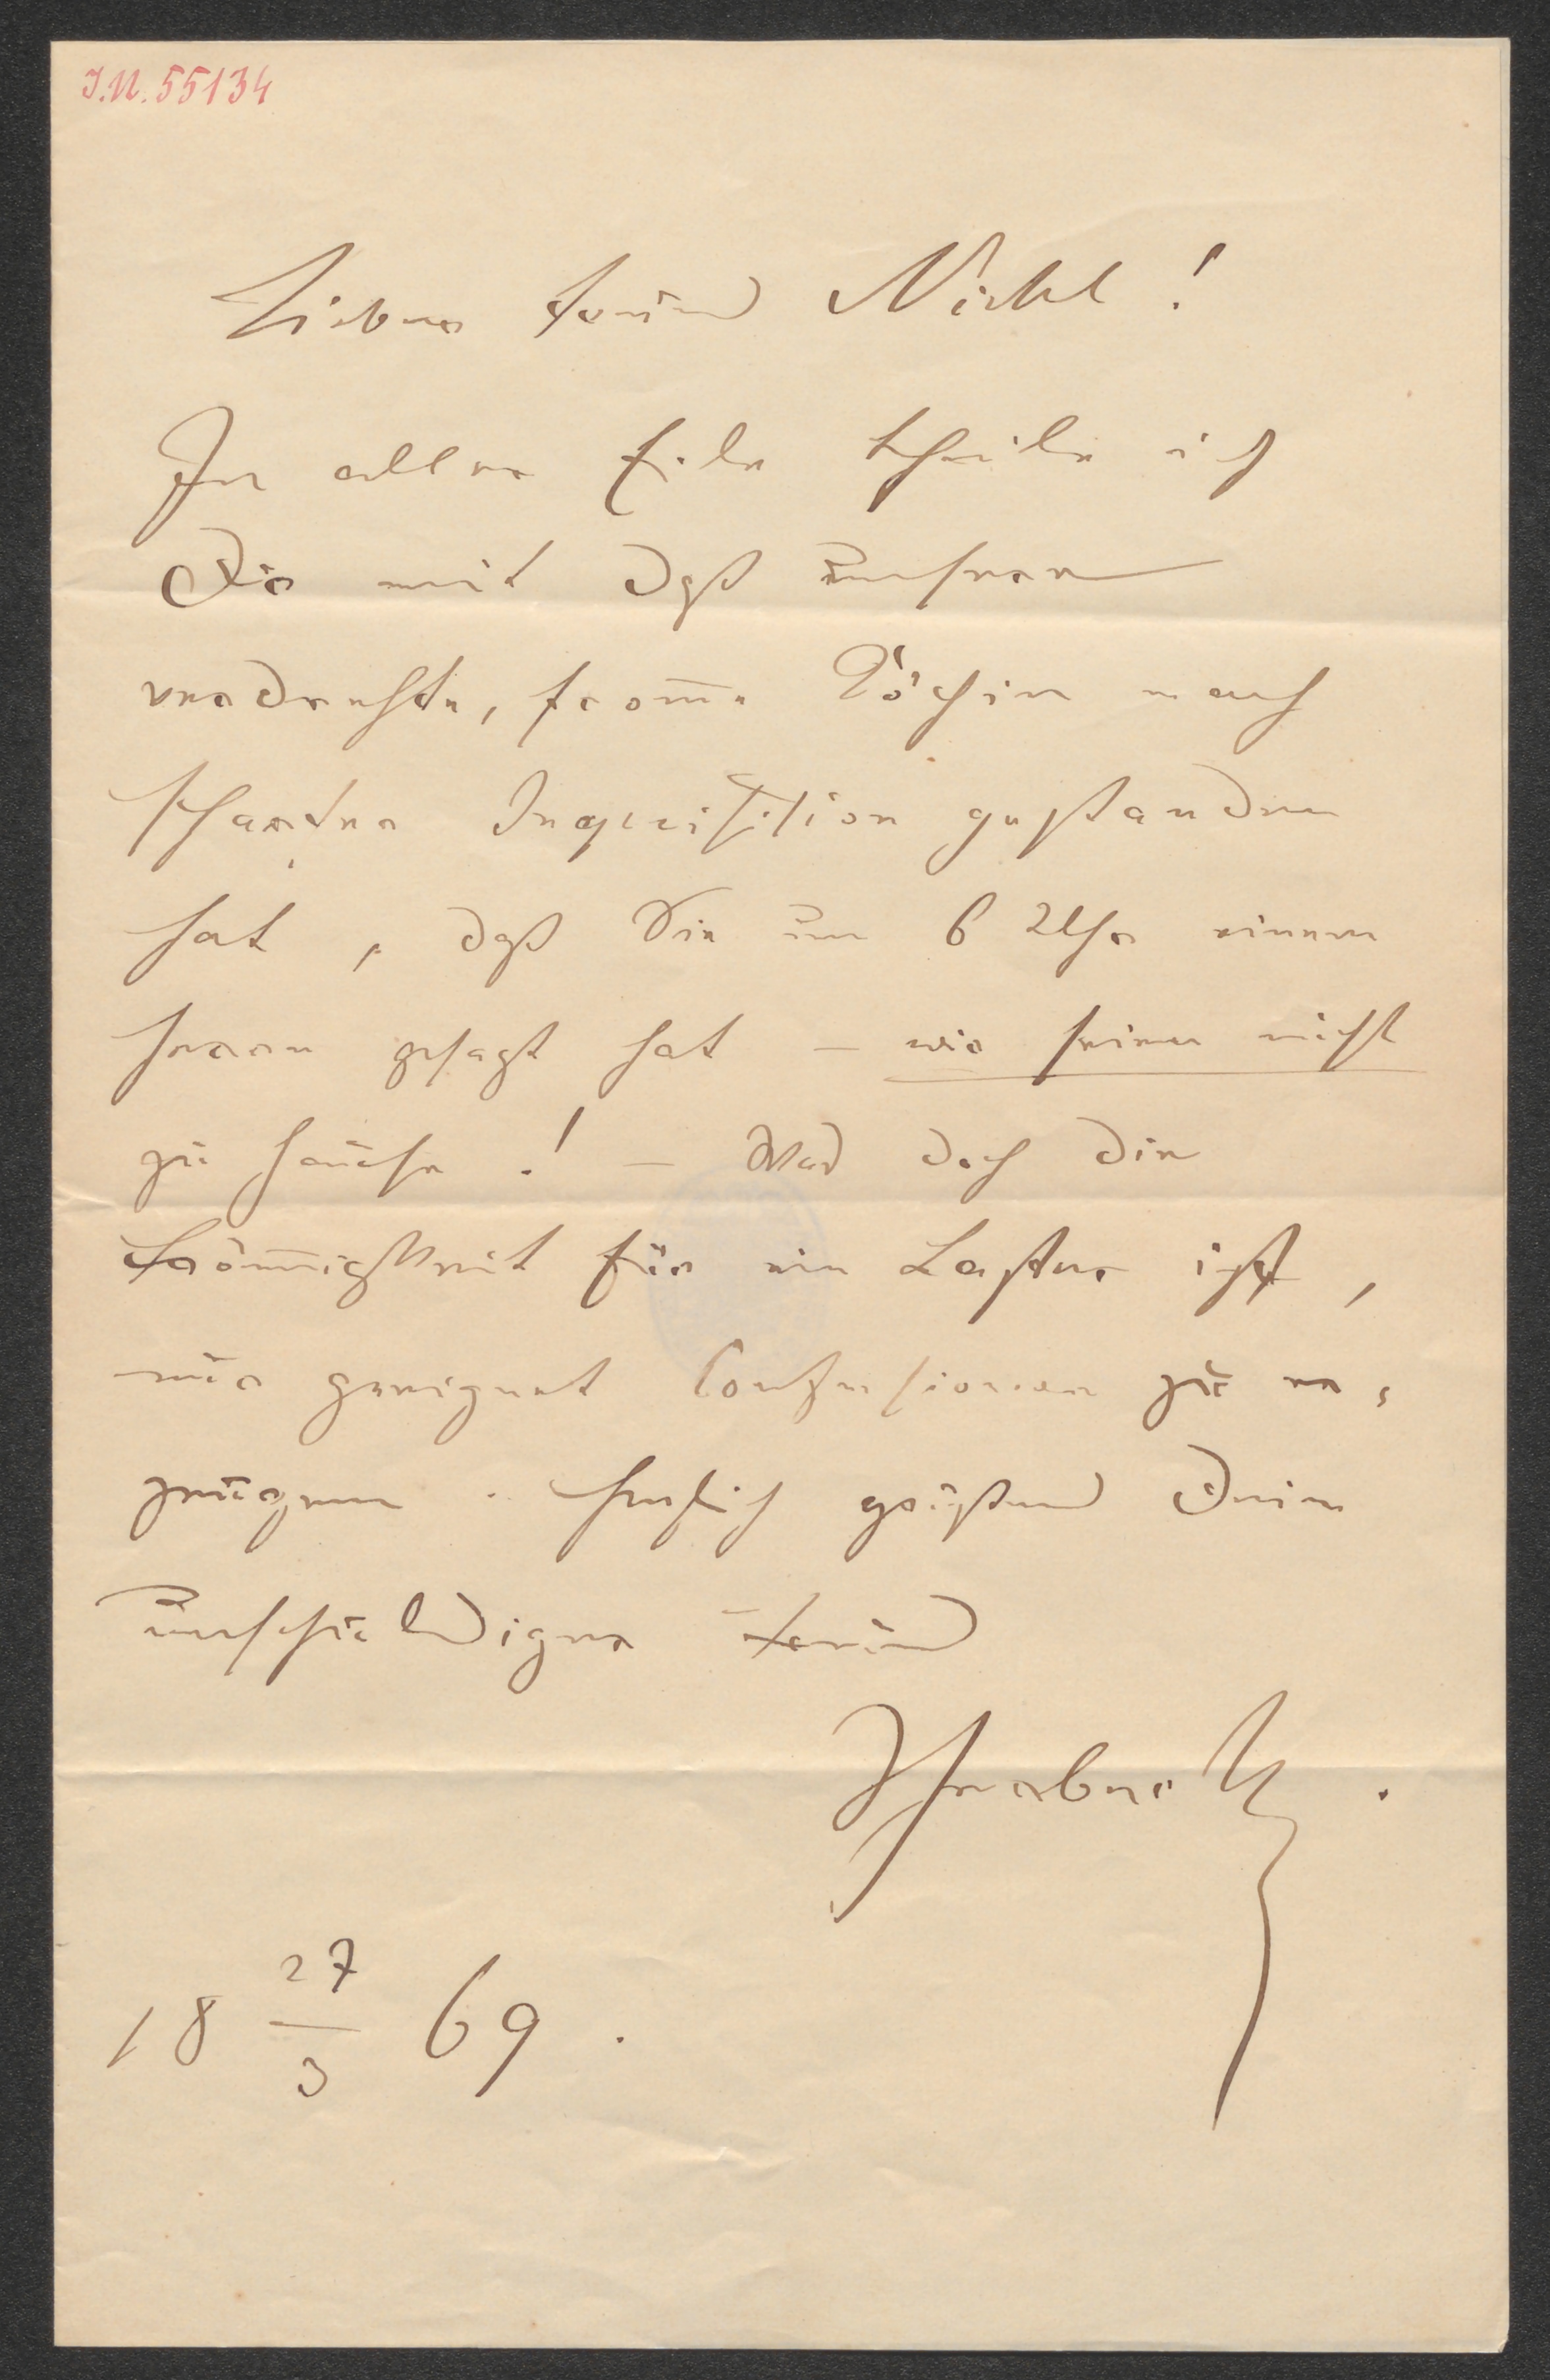 J.N. 55134
Lieber Freund Nickel!
In aller Eile theile ich
Dir mit daß unsere
verdrehte, fromme Köchin nach
scharfer Inquisition gestanden
hat, daß Sie um 6 Uhr einem
Herrn gesagt hat – wir seien nicht
zu Hause! – Was doch die
Frömmigkeit für ein Laster ist,
nur geeignet Confusionen zu er-
zeugen. Herzlich grüßend Dein
unschuldiger Freund
Herbeck.
18 27/3 69.